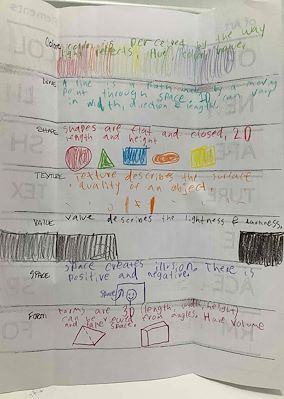 Color color is perceived by the way
light reflects. Hue, color, value
LINE A line is a path made by a moving
point through space. 1D can vary
in width, direction & length.
SHAPE shapes are flat and closed, 2D
length and height
TEXTURE Texture describes the surface
quality of an object.
VALUE value describes the lightness & darkness.
SPACE space creates illusion. There is
positive and negative.
space
FORM forms are 3D (length, width, height)
can be viewed from angles. Have volume
and take space.